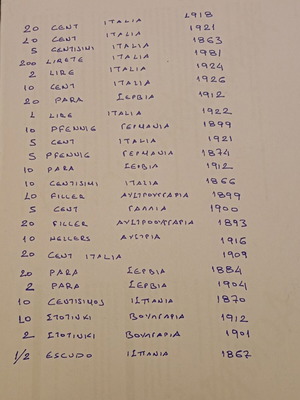 20 CENT ITALIA 1918
20 CENT ITALIA 1921
5 CENTISINI ITALIA 1863
200 LIRETE ITALIA 1981
2 LIRE ITALIA 1924
10 CENT ITALIA 1926
20 PARA ΣΕΡΒΙΑ 1912
1 LIRE ITALIA 1922
10 PFENNIG ΓΕΡΜΑΝΙΑ 1899
5 CENT ITALIA 1921
5 PFENNIG ΓΕΡΜΑΝΙΑ 1874
10 PARA ΣΕΡΒΙΑ 1912
10 CENTISIMI ITALIA 1866
20 FILLER ΑΥΣΤΡΟΥΓΓΑΡΙΑ 1899
5 CENT ΓΑΛΛΙΑ 1900
20 FILLER ΑΥΣΤΡΟΟΥΓΓΑΡΙΑ 1893
10 HELLERS ΑΥΣΤΡΙΑ 1916
20 CENT ITALIA 1909
20 PARA ΣΕΡΒΙΑ 1884
2 PARA ΣΕΡΒΙΑ 1904
10 CENTISIMOS ΙΣΠΑΝΙΑ 1870
10 ΣΤΟΤΙΝΚΙ ΒΟΥΛΓΑΡΙΑ 1912
2 ΣΤΟΤΙΝΚΙ ΒΟΥΛΓΑΡΙΑ 1901
1/2 ESCUDO ΙΣΠΑΝΙΑ 1867